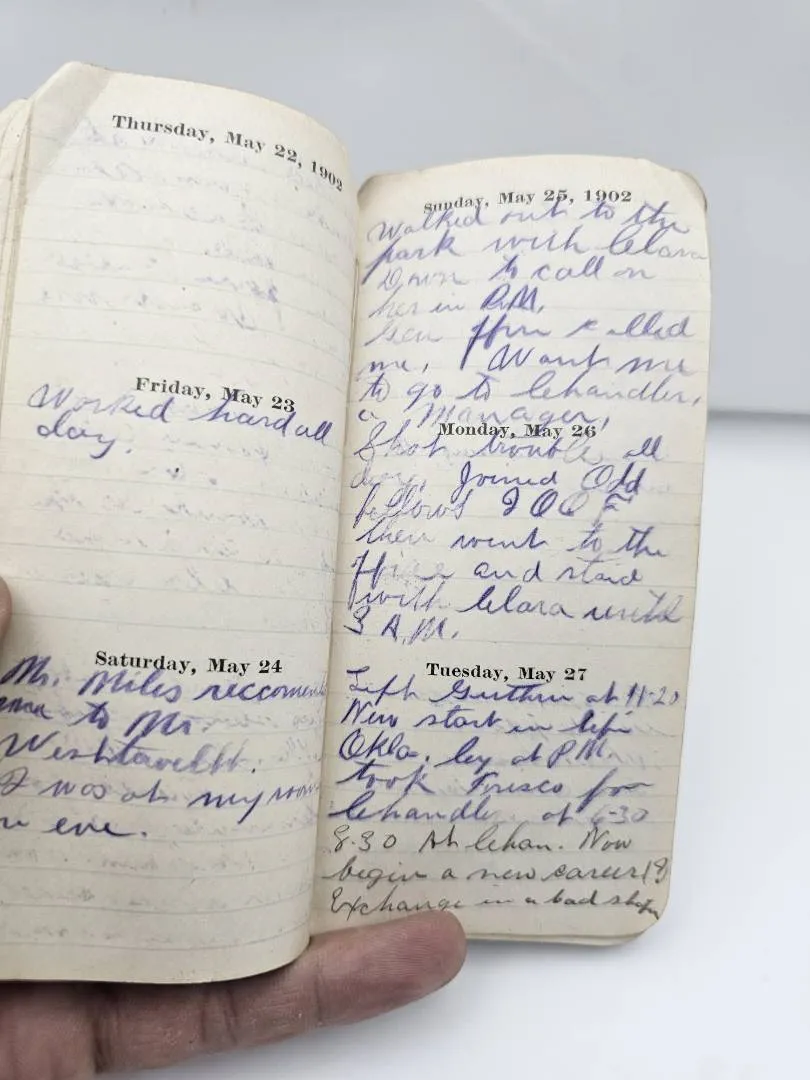 Thursday, May 22, 1902
Friday, May 23
Worked hard all
day.
Saturday, May 24
Mr. Miles reccomend
me to Mr.
I was at my room
eve.
Sunday, May 25, 1902
Walked out to the
park with Clara
Down to call on
her in P.M.
called
me, Want me
to go to Chandler,
a Manager,
Monday, May 26
Shot trouble all
day. Joined Odd
fellows I O O F
then went to the
office and staid
with Clara until
3 A.M.
Tuesday, May 27
Left Guthrie at 11-20
New start in life
Okla. City at P.M.
took Frisco for
Chandler at 6-30
8.30 At Chan. Now
begin a new career (?)
Exchange in a bad shape